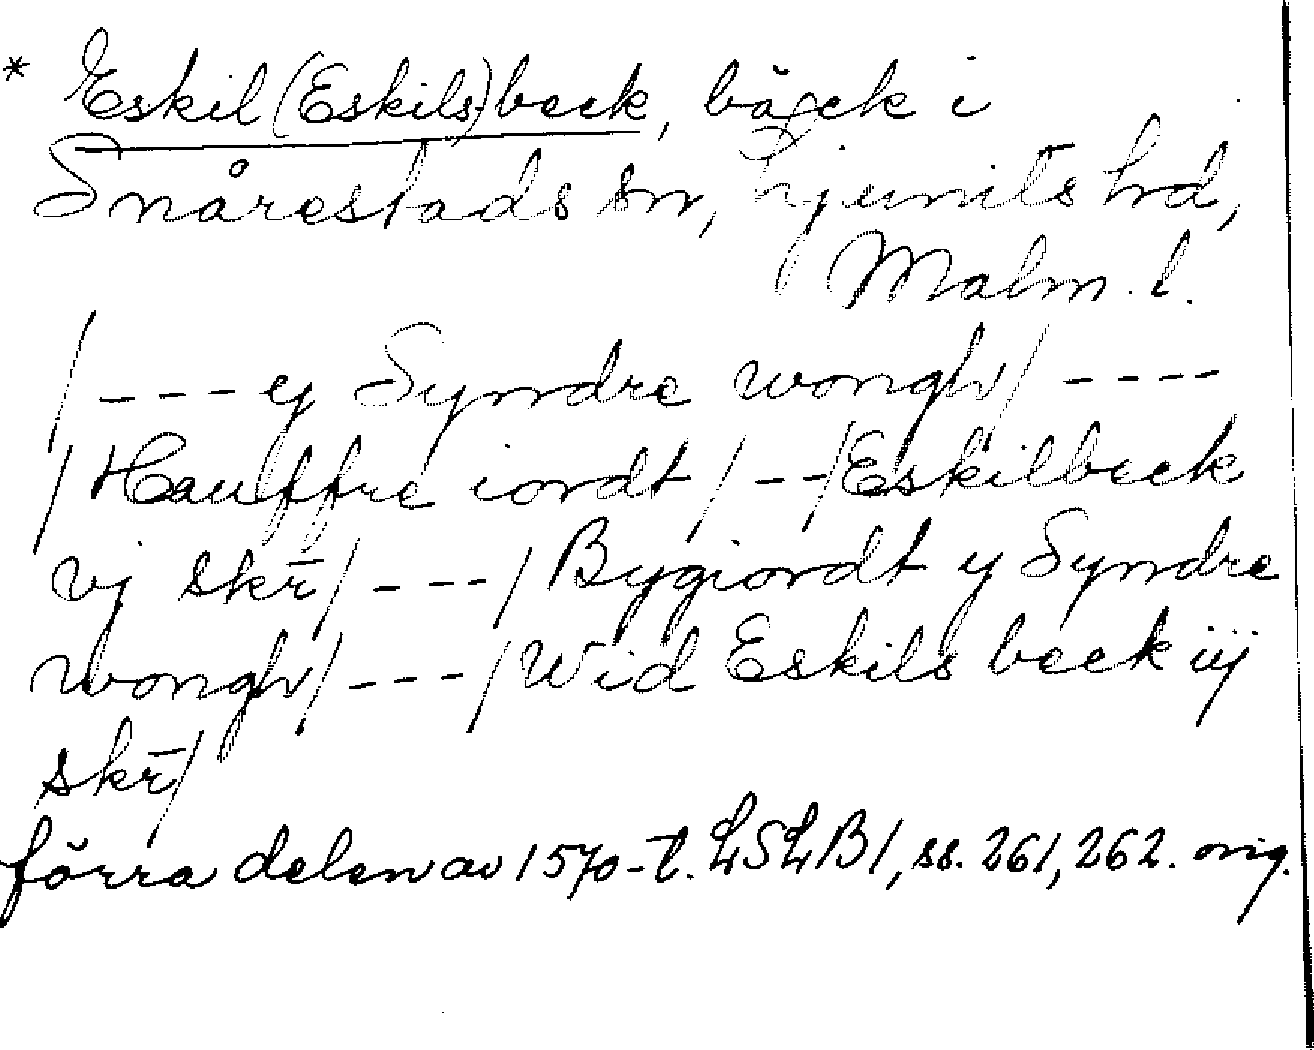 * Eskil(Eskils)beck, bäck i
Snårestads sn, Ljunits hd,
Malm. l.
/---ej Syndre wongh/----
/Hauffre iordt/--/Eskilbeck
vj skr̄/---/Bygiordt y Syndre
wongh/---/Wid Eskils beck iij
skr̄/
förra delen av 1570-t. LSLB1, ss. 261, 262. orig.